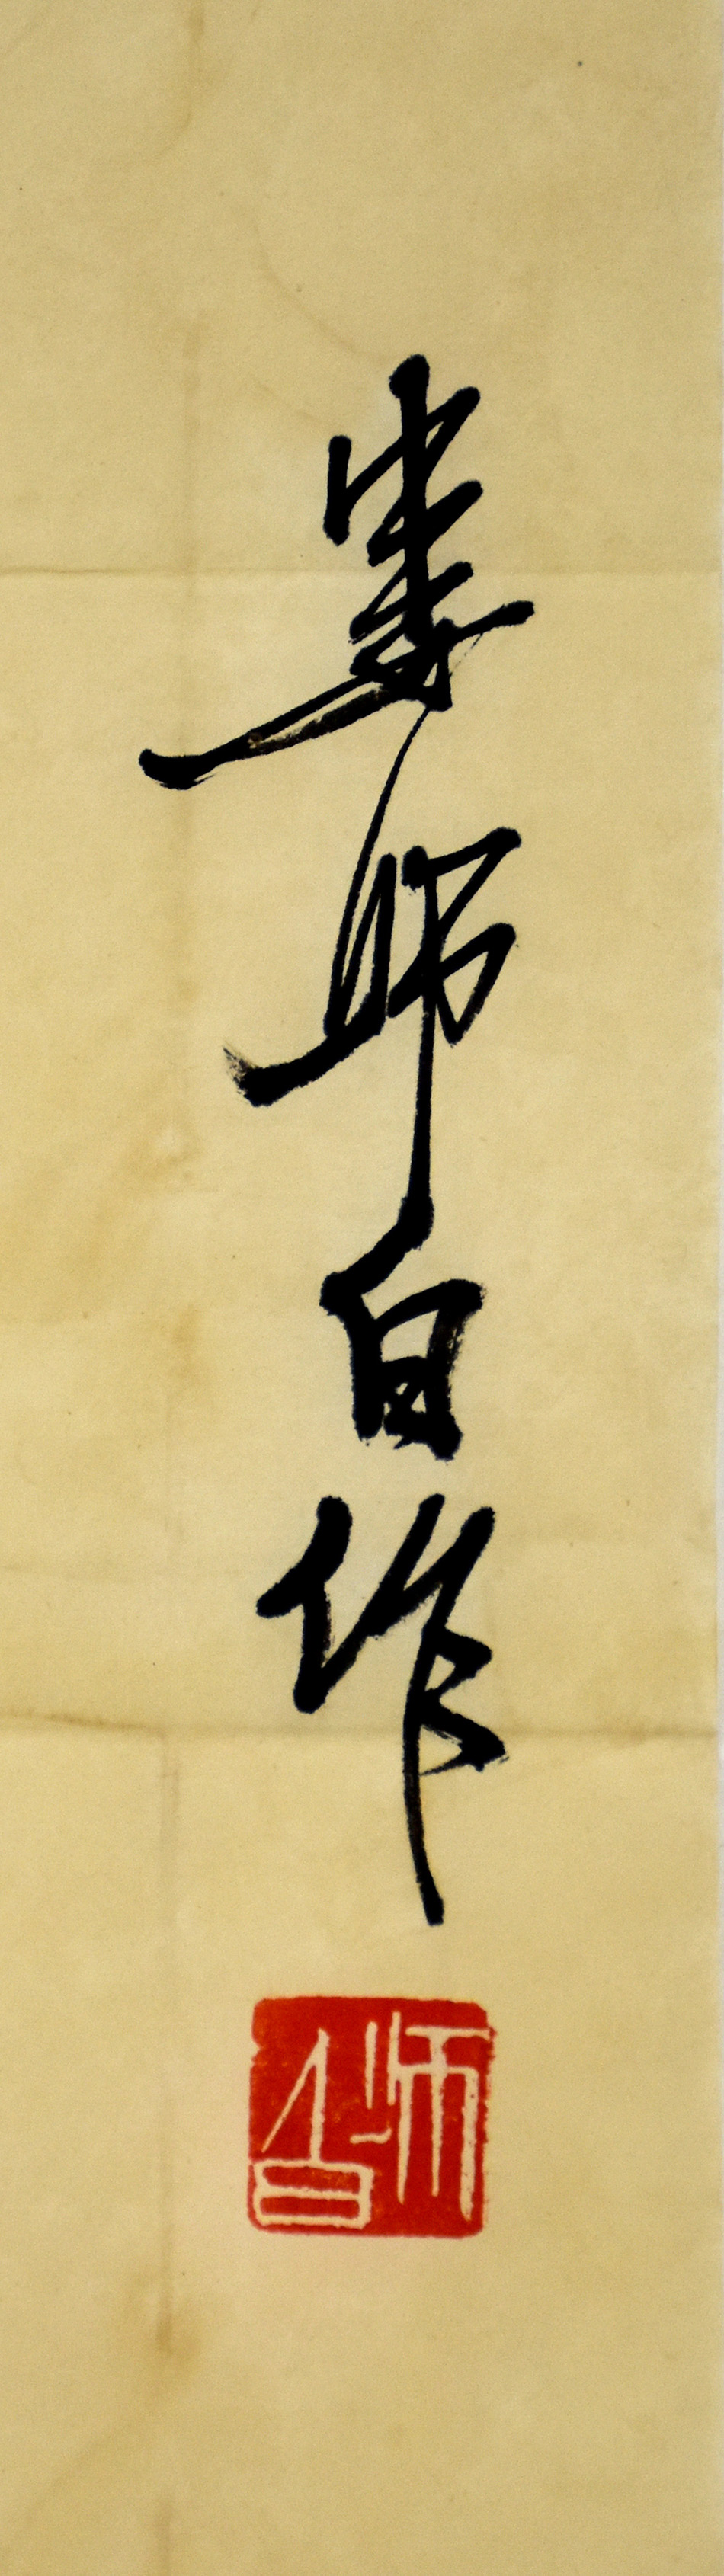 娄师白作
师白